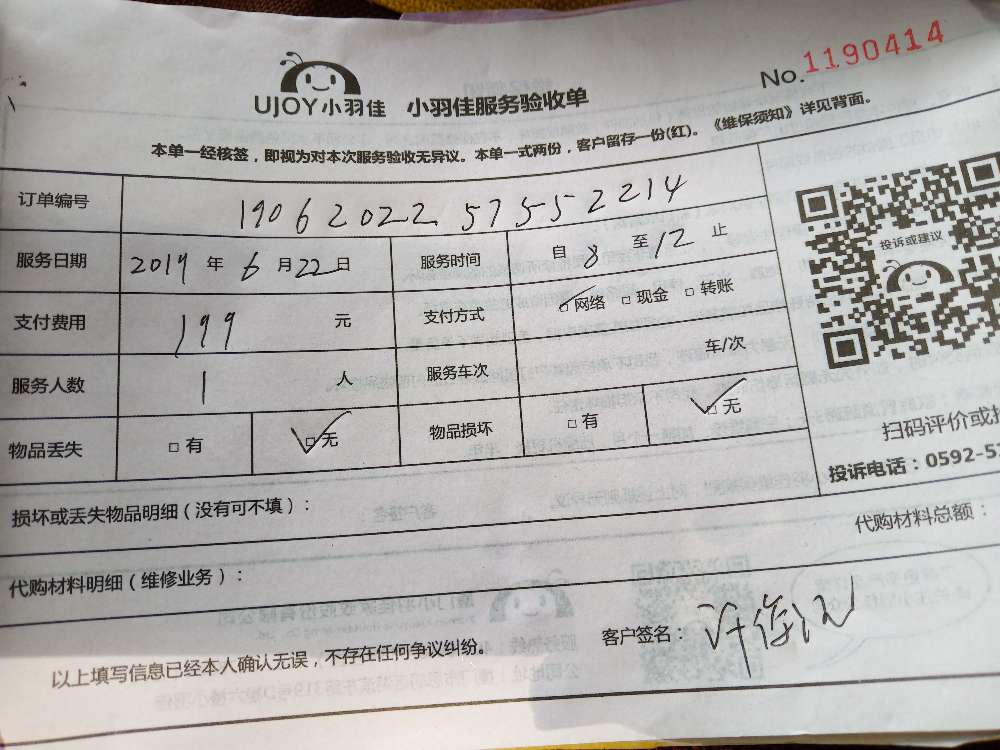 No.1190414
UJOY小羽佳 小羽佳服务验收单
本单一经核签，即视为对本次服务验收无异议。本单一式两份，客户留存一份(红)。《维保须知》详见背面。
订单编号 1906202257552214
服务日期 2019 年 6 月 22 日 服务时间 自 8 至 12 止
投诉或建议
支付费用 199 元 支付方式 ☑网络 □现金 □转账
服务人数 1 人 服务车次 车/次
物品丢失 □有 ☑无 物品损坏 □有 ☑无
扫码评价或
投诉电话：0592-5
损坏或丢失物品明细（没有可不填）：
代购材料总额：
代购材料明细（维修业务）：
以上填写信息已经本人确认无误，不存在任何争议纠纷。 客户签名：